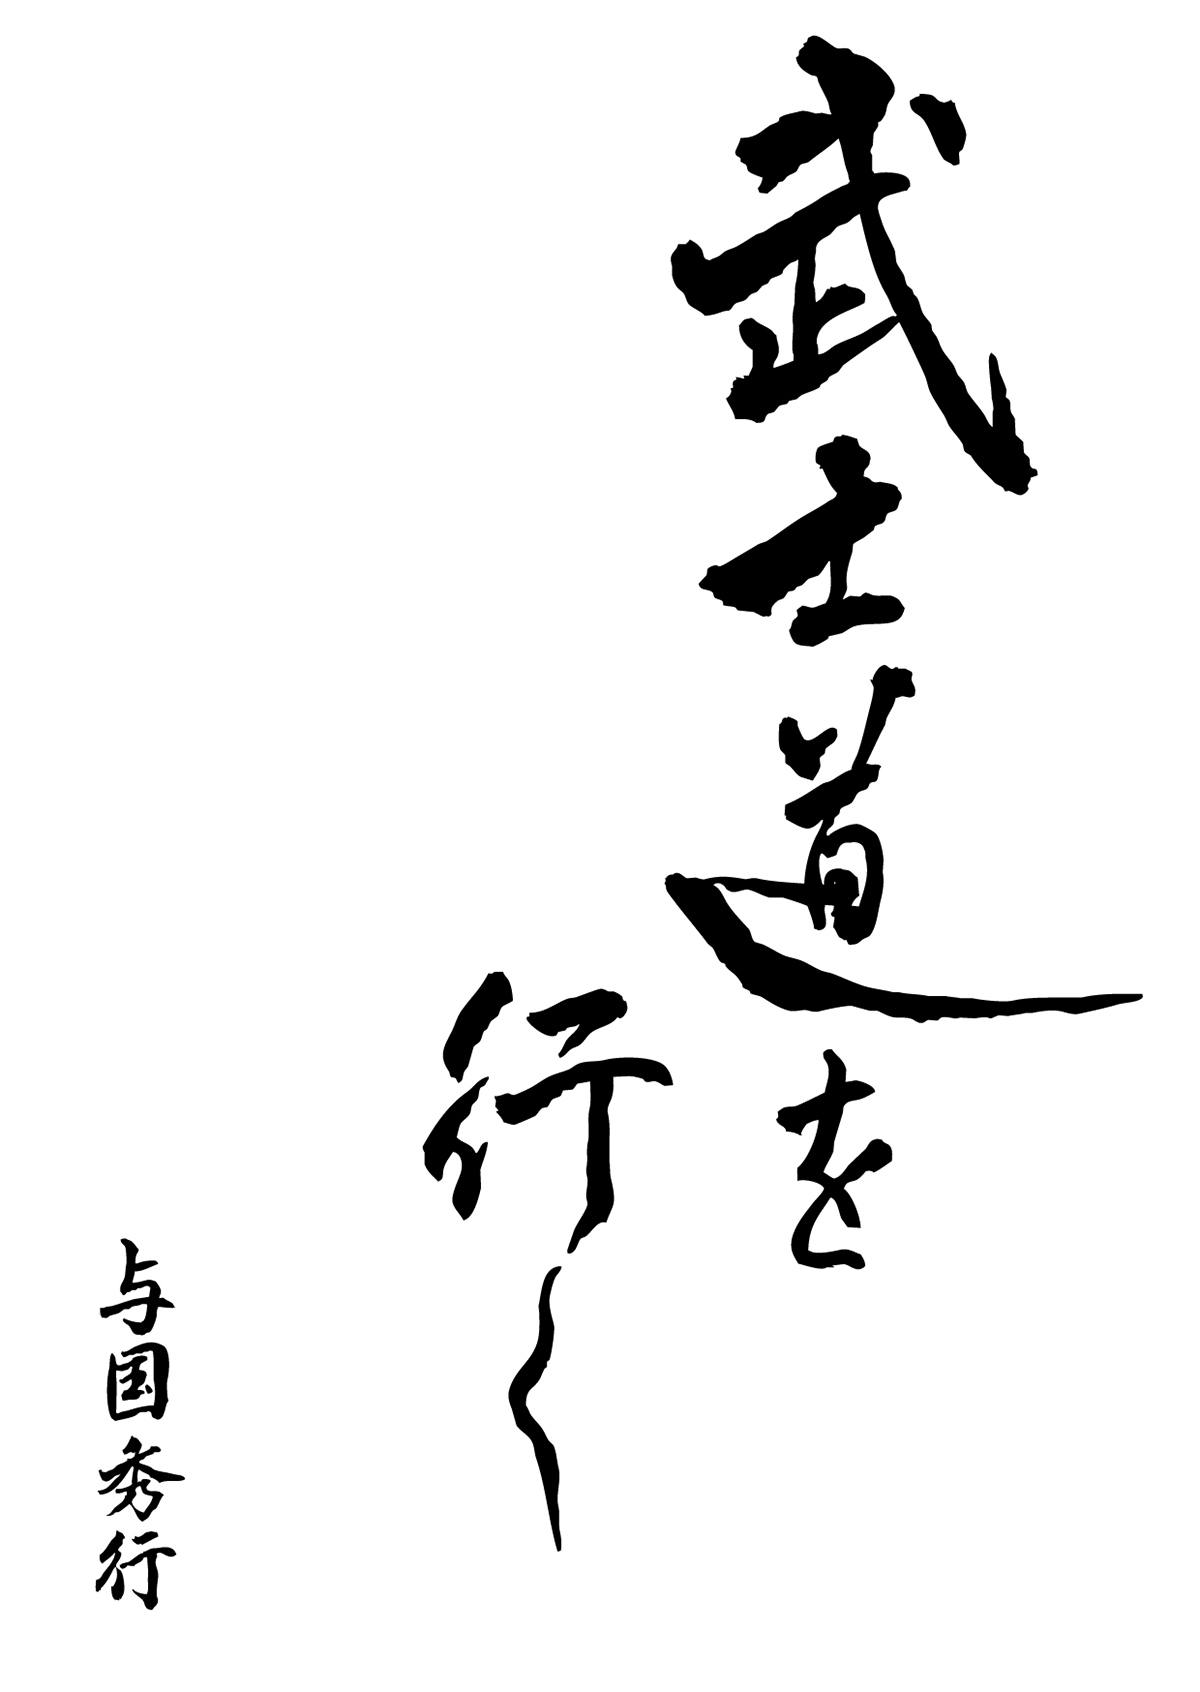 武士道を
行く
与国秀行